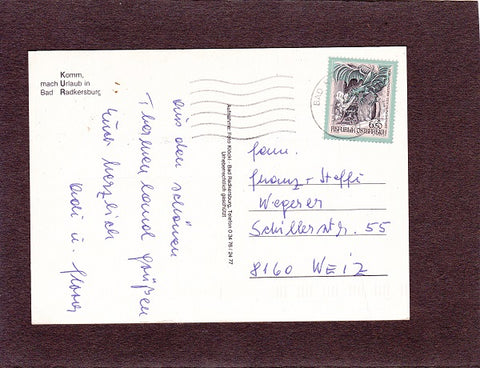 Komm,
mach Urlaub in
Bad Radkersburg
Aus dem schönen
Thermenland grüßen
Euch herzlich
Didi u.
Aufnahme: Foto Klöckl - Bad Radkersburg, Telefon 0 34 76 / 24 77
Urheberrechtlich geschützt
BAD
6.50
REPUBLIK ÖSTERREICH
Fam.
Franz + Steffi
Wegerer
Schillerstr. 55
8160 WEIZ